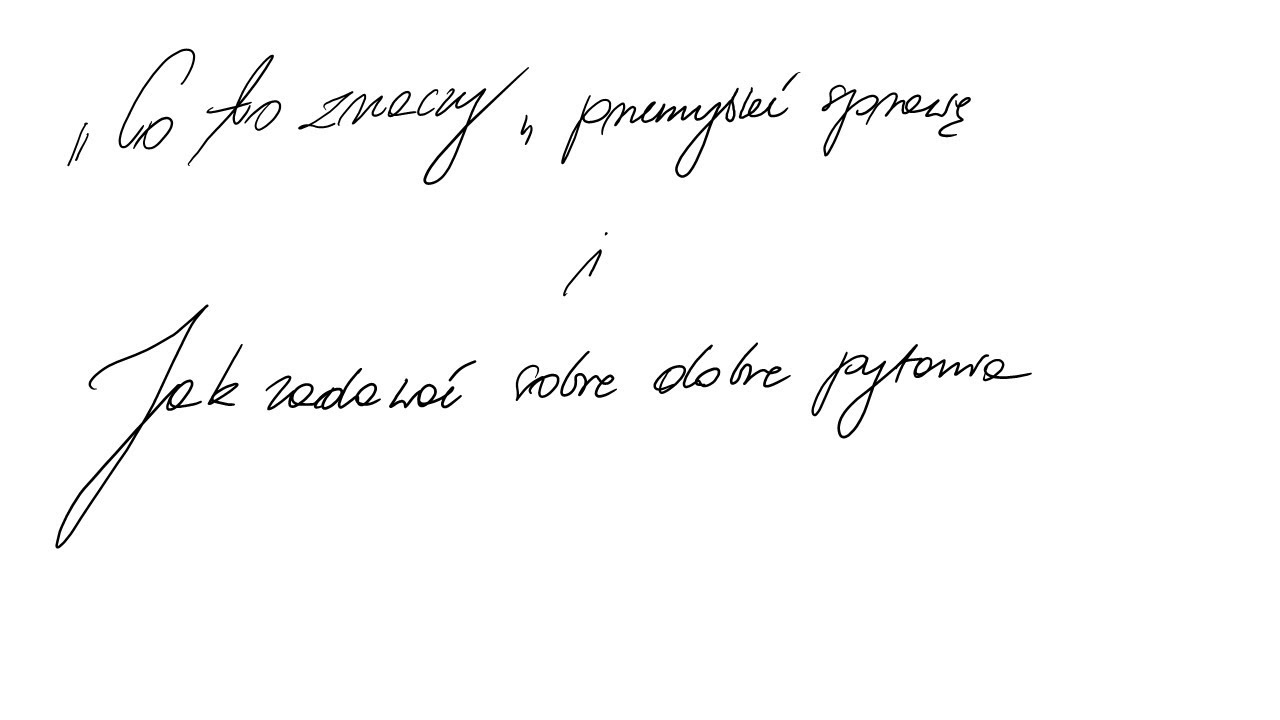 „Co to znaczy„ przemyśleć sprawę
i
Jak zadawać sobie dobre pytania